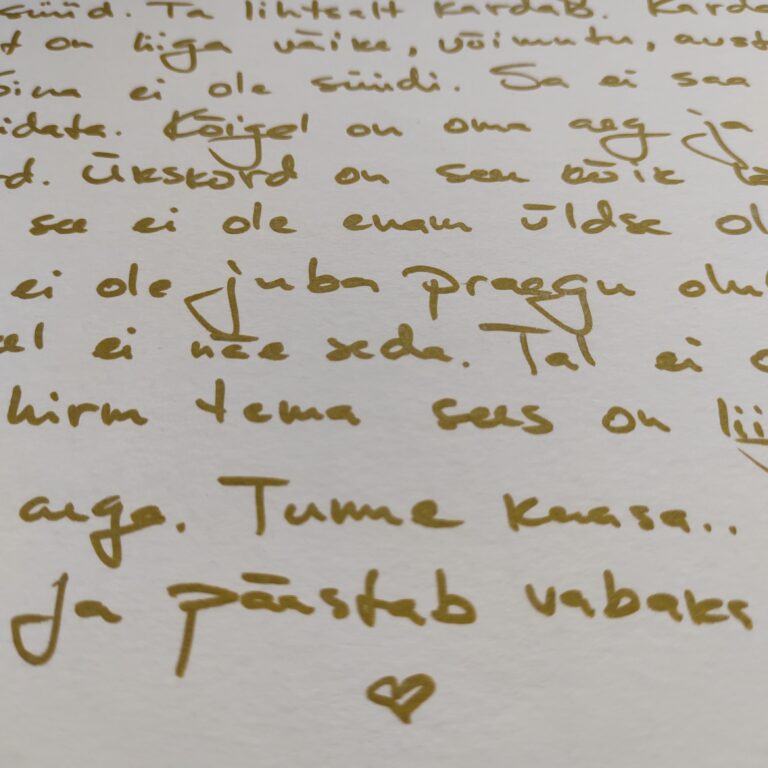 süüd. Ta lihtsalt kardab.
on liiga väike, võimutu,
Sina ei ole süüdi. Sa ei saa
aidata. Kõigel on oma aeg ja
Ükskord on see kõik
see ei ole enam üldse
ei ole juba praegu
ei näe seda. Tal ei
hirm tema sees on
aega. Tunne kaasa..
Ja päästab vabaks